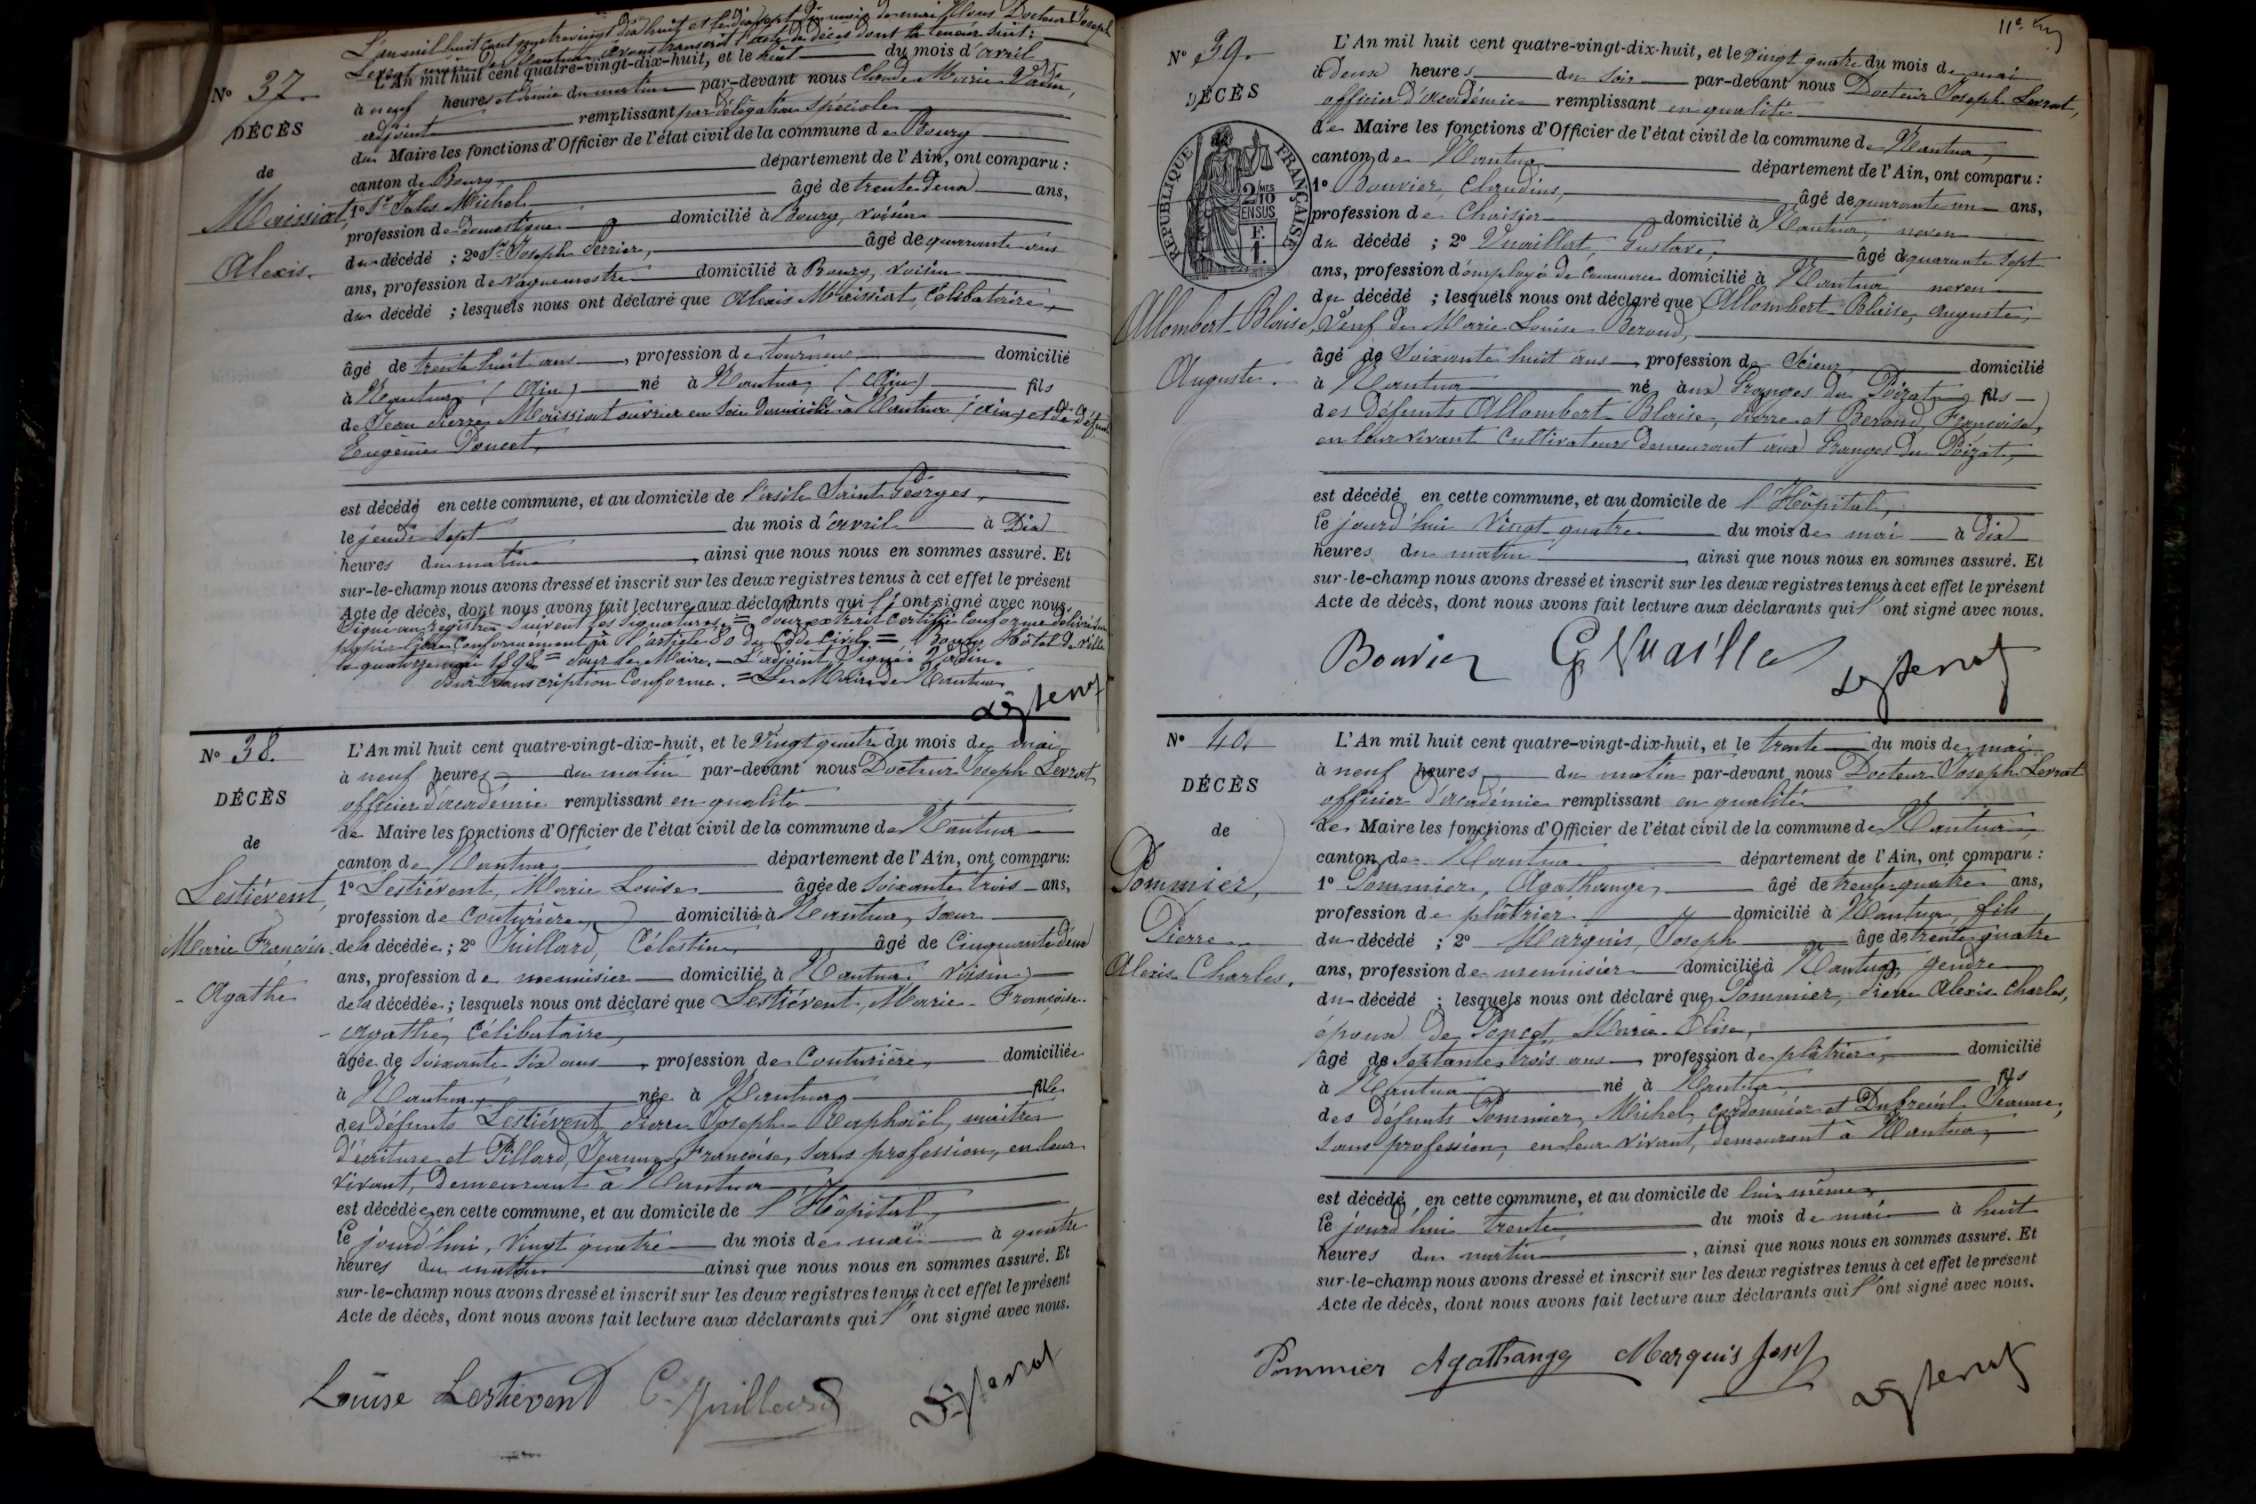 L'an mil huit cent quatre vingt dix huit et le dix sept du mois de mai Nous Docteur Joseph
Levrat maire de Nantua avons transcrit l'acte de décès dont la teneur suit :
N° 37.
DÉCÈS
de
Maissiat,
Alexis.
L'An mil huit cent quatre-vingt-dix-huit, et le huit du mois d'avril
à neuf heures et demie du matin par-devant nous Claude Marie
adjoint remplissant par délégation spéciale
du Maire les fonctions d'Officier de l'état civil de la commune de Bourg
canton de Bourg département de l'Ain, ont comparu :
1° Sr Jules Michel âgé de trente deux ans,
profession de domestique domicilié à Bourg, voisin
du décédé ; 2° Sr Joseph Perrier, âgé de quarante ans
ans, profession de vaguemestre domicilié à Bourg, voisin
du décédé ; lesquels nous ont déclaré que Alexis Maissiat Célibataire,
âgé de trente huit ans, profession de tourneur domicilié
à Nantua (Ain) né à Nantua (Ain) fils
de Jean Pierre Maissiat ouvrier en soie domicilié à Nantua (Ain) et de défunte
Eugénie Poncet,
est décédé en cette commune, et au domicile de l'asile Saint Georges,
le jeudi sept du mois d'avril à Dix
heures du matin, ainsi que nous nous en sommes assuré. Et
sur-le-champ nous avons dressé et inscrit sur les deux registres tenus à cet effet le présent
Acte de décès, dont nous avons fait lecture aux déclarants qui l'ont signé avec nous.
Signé au registre Suivent les signatures. = Pour extrait certifié conforme délivré sur
papier libre conformément à l'article 80 du Code Civil = Bourg Hôtel de Ville
le quatorze mai 1898 = Pour le Maire. — L'adjoint, Signé :
Pour transcription Conforme. = Le Maire de Nantua
Dr J Levrat
N° 38.
DÉCÈS
de
Lestiévent,
Marie Françoise
- Agathe
L'An mil huit cent quatre-vingt-dix-huit, et le Vingt quatre du mois de mai
à neuf heures du matin par-devant nous Docteur Joseph Levrat
officier d'académie remplissant en qualité
de Maire les fonctions d'Officier de l'état civil de la commune de Nantua
canton de Nantua département de l'Ain, ont comparu :
1° Lestiévent, Marie Louise âgée de soixante trois ans,
profession de Couturière, domiciliée à Nantua, sœur
de la décédée ; 2° Juillard, Célestin, âgé de Cinquante deux
ans, profession de menuisier domicilié à Nantua voisin
de la décédée ; lesquels nous ont déclaré que Lestiévent, Marie - Françoise -
- Agathe, Célibataire,
âgée de soixante six ans, profession de Couturière, domiciliée
à Nantua, née à Nantua, fille
des défunts Lestiévent, Pierre Joseph - Raphaël, maître
d'écriture et Pillard, Jeanne Françoise, sans profession, en leur
vivant, demeurant à Nantua
est décédée en cette commune, et au domicile de l'Hôpital,
le jourd'hui, Vingt quatre du mois de mai à quatre
heures du matin ainsi que nous nous en sommes assuré. Et
sur-le-champ nous avons dressé et inscrit sur les deux registres tenus à cet effet le présent
Acte de décès, dont nous avons fait lecture aux déclarants qui l'ont signé avec nous.
Louise Lestiévent C. Juillard Dr J Levrat
11e
N° 39.
DÉCÈS
RÉPUBLIQUE FRANÇAISE
2/10 MES
EN SUS
F.
1.
Allombert-Blaise,
Auguste.
L'An mil huit cent quatre-vingt-dix-huit, et le vingt quatre du mois de mai
à deux heures du soir par-devant nous Docteur Joseph Levrat,
officier d'académie remplissant en qualité
de Maire les fonctions d'Officier de l'état civil de la commune de Nantua,
canton de Nantua département de l'Ain, ont comparu :
1° Bouvier, Claudius, âgé de quarante un ans,
profession de Chaisier domicilié à Nantua, neveu
du décédé ; 2° Vuaillat, Gustave, âgé de quarante sept
ans, profession d'employé de Commerce domicilié à Nantua neveu
du décédé ; lesquels nous ont déclaré que Allombert-Blaise, Auguste,
Veuf de Marie Louise Beroud,
âgé de Soixante huit ans, profession de Scieur domicilié
à Nantua né aux Granges du Poizat, fils
des défunts Allombert-Blaise, Pierre et Beroud, Françoise,
en leur vivant Cultivateurs demeurant aux Granges du Poizat,
est décédé en cette commune, et au domicile de l'Hôpital,
le jourd'hui Vingt quatre du mois de mai à dix
heures du matin, ainsi que nous nous en sommes assuré. Et
sur-le-champ nous avons dressé et inscrit sur les deux registres tenus à cet effet le présent
Acte de décès, dont nous avons fait lecture aux déclarants qui l'ont signé avec nous.
Bouvier G Vuaillat Dr J Levrat
N° 40.
DÉCÈS
de
Pommier,
Pierre
Alexis Charles.
L'An mil huit cent quatre-vingt-dix-huit, et le trente du mois de mai
à neuf heures du matin par-devant nous Docteur Joseph Levrat
officier d'académie remplissant en qualité
de Maire les fonctions d'Officier de l'état civil de la commune de Nantua
canton de Nantua département de l'Ain, ont comparu :
1° Pommier, Agathange, âgé de trente quatre ans,
profession de plâtrier domicilié à Nantua, fils
du décédé ; 2° Marquis, Joseph âgé de trente quatre
ans, profession de menuisier domicilié à Nantua, gendre
du décédé ; lesquels nous ont déclaré que Pommier, Pierre Alexis Charles,
époux de Poncet, Marie-Elise,
âgé de Septante trois ans, profession de plâtrier, domicilié
à Nantua né à Nantua fils
des défunts Pommier, Michel, cordonnier et Dubreuil Jeanne,
sans profession, en leur vivant, demeurant à Nantua,
est décédé en cette commune, et au domicile de lui même,
le jourd'hui trente du mois de mai à huit
heures du matin, ainsi que nous nous en sommes assuré. Et
sur-le-champ nous avons dressé et inscrit sur les deux registres tenus à cet effet le présent
Acte de décès, dont nous avons fait lecture aux déclarants qui l'ont signé avec nous.
Pommier Agathange Marquis Josef Dr J Levrat